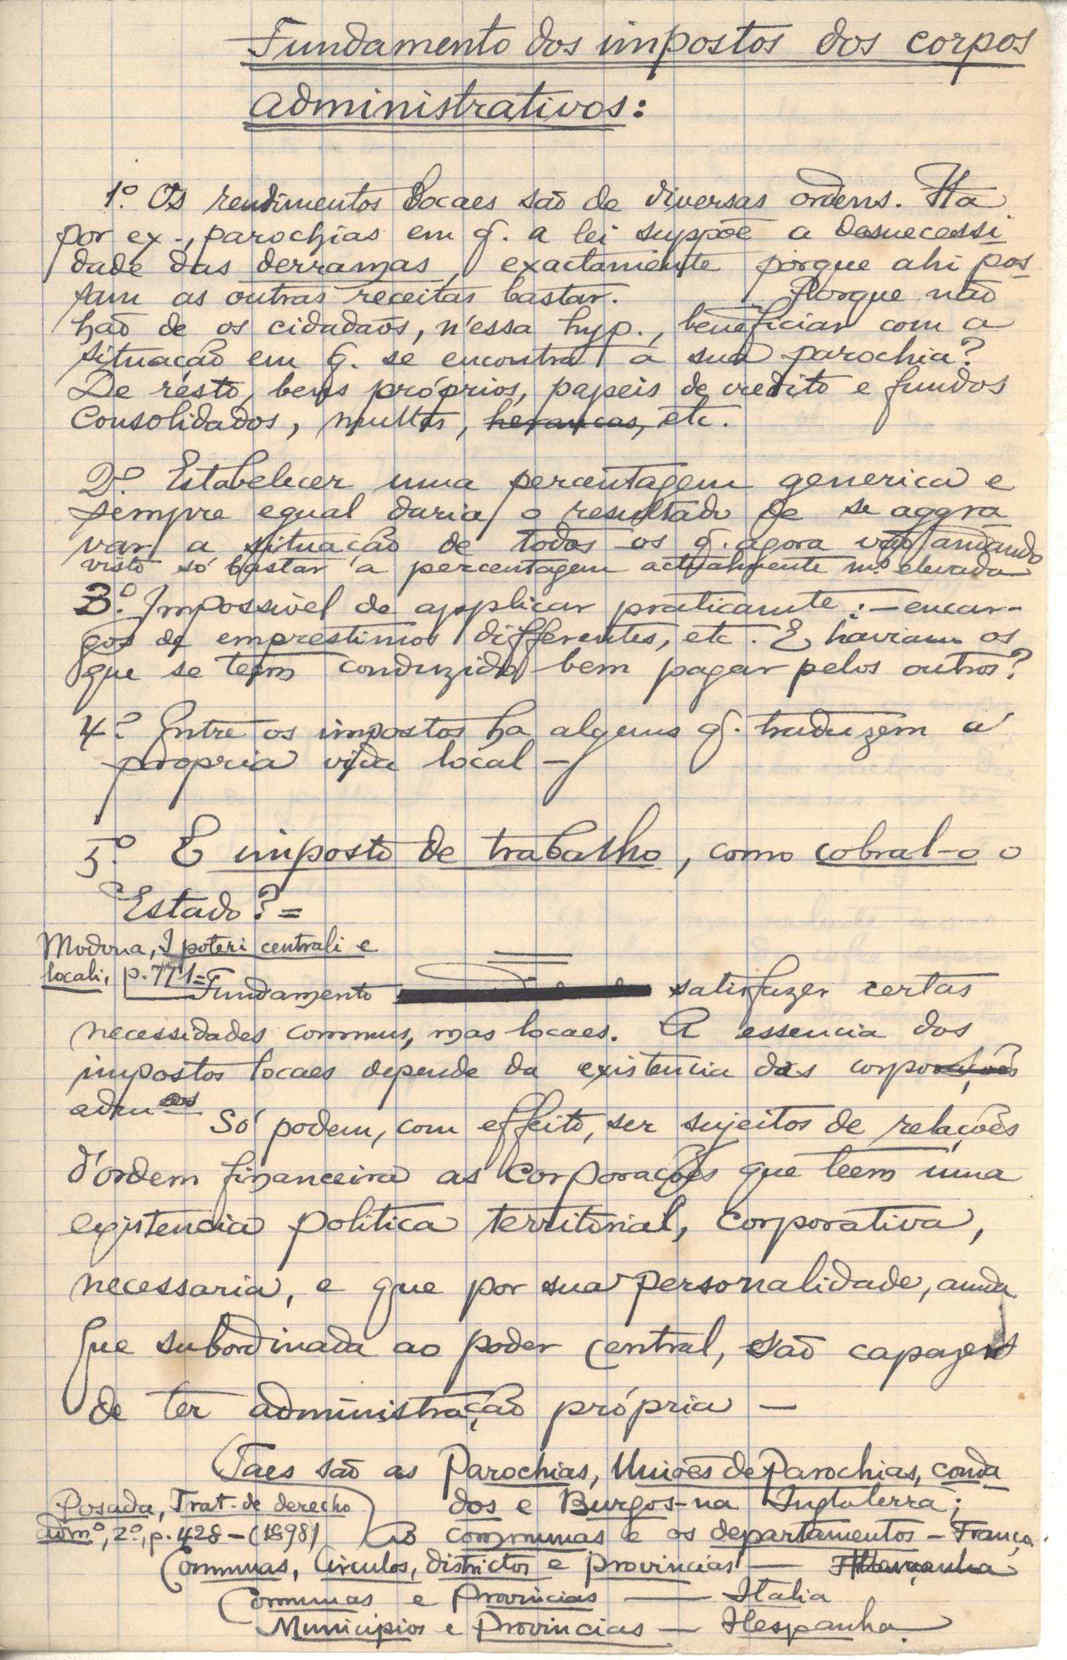 Fundamento dos impostos dos corpos
administrativos:
1.º Os rendimentos locaes são de diversas ordens. Ha
por ex., parochias em q. a lei suppõe a desnecessi
dade das derramas, exactamente porque ahi pos
sam as outras receitas bastar. Porque não
hão de os cidadãos, n'essa hyp., beneficiar com a
situação em q. se encontra a sua parochia?
De résto, bens próprios, papeis de credito e fundos
consolidados, multas, heranças, etc.
2.º Estabelecer uma percentagem generica e
sempre egual daria o resultado de se aggra
var a situação de todos os q. agora vão
visto só bastar a percentagem actualmente m.º elevada
3.º Impossivel de applicar praticamte: — encar-
gos de emprestimos differentes, etc. E haviam os
que se teem conduzido bem pagar pelos outros?
4.º Entre os impostos ha alguns q. traduzem a
propria vida local —
5.º E imposto de trabalho, como cobral-o o
Estado? =
Modona, I poteri centrali e
locali, p. 771 =
Fundamento satisfazer certas
necessidades commus, mas locaes. A essencia dos
impostos locaes depende da existencia das corporações
adm
Só podem, com effeito, ser sujeitos de relações
d'ordem financeira as corporações que teem uma
existencia politica territorial, corporativa,
necessaria, e que por sua personalidade, ainda
que subordinada ao poder central, são capazes
de ter administração própria —
Taes são as Parochias, Uniões de Parochias, conda
dos e Burgos - na Inglaterra;
Posada, Trat. de derecho
admº, 2.º, p. 428 - (1898)
As communas e os departamentos - França.
Communas, Circulos, districtos e provincias — Allemanha
Communas e Provincias — Italia
Municipios e Provincias — Hespanha